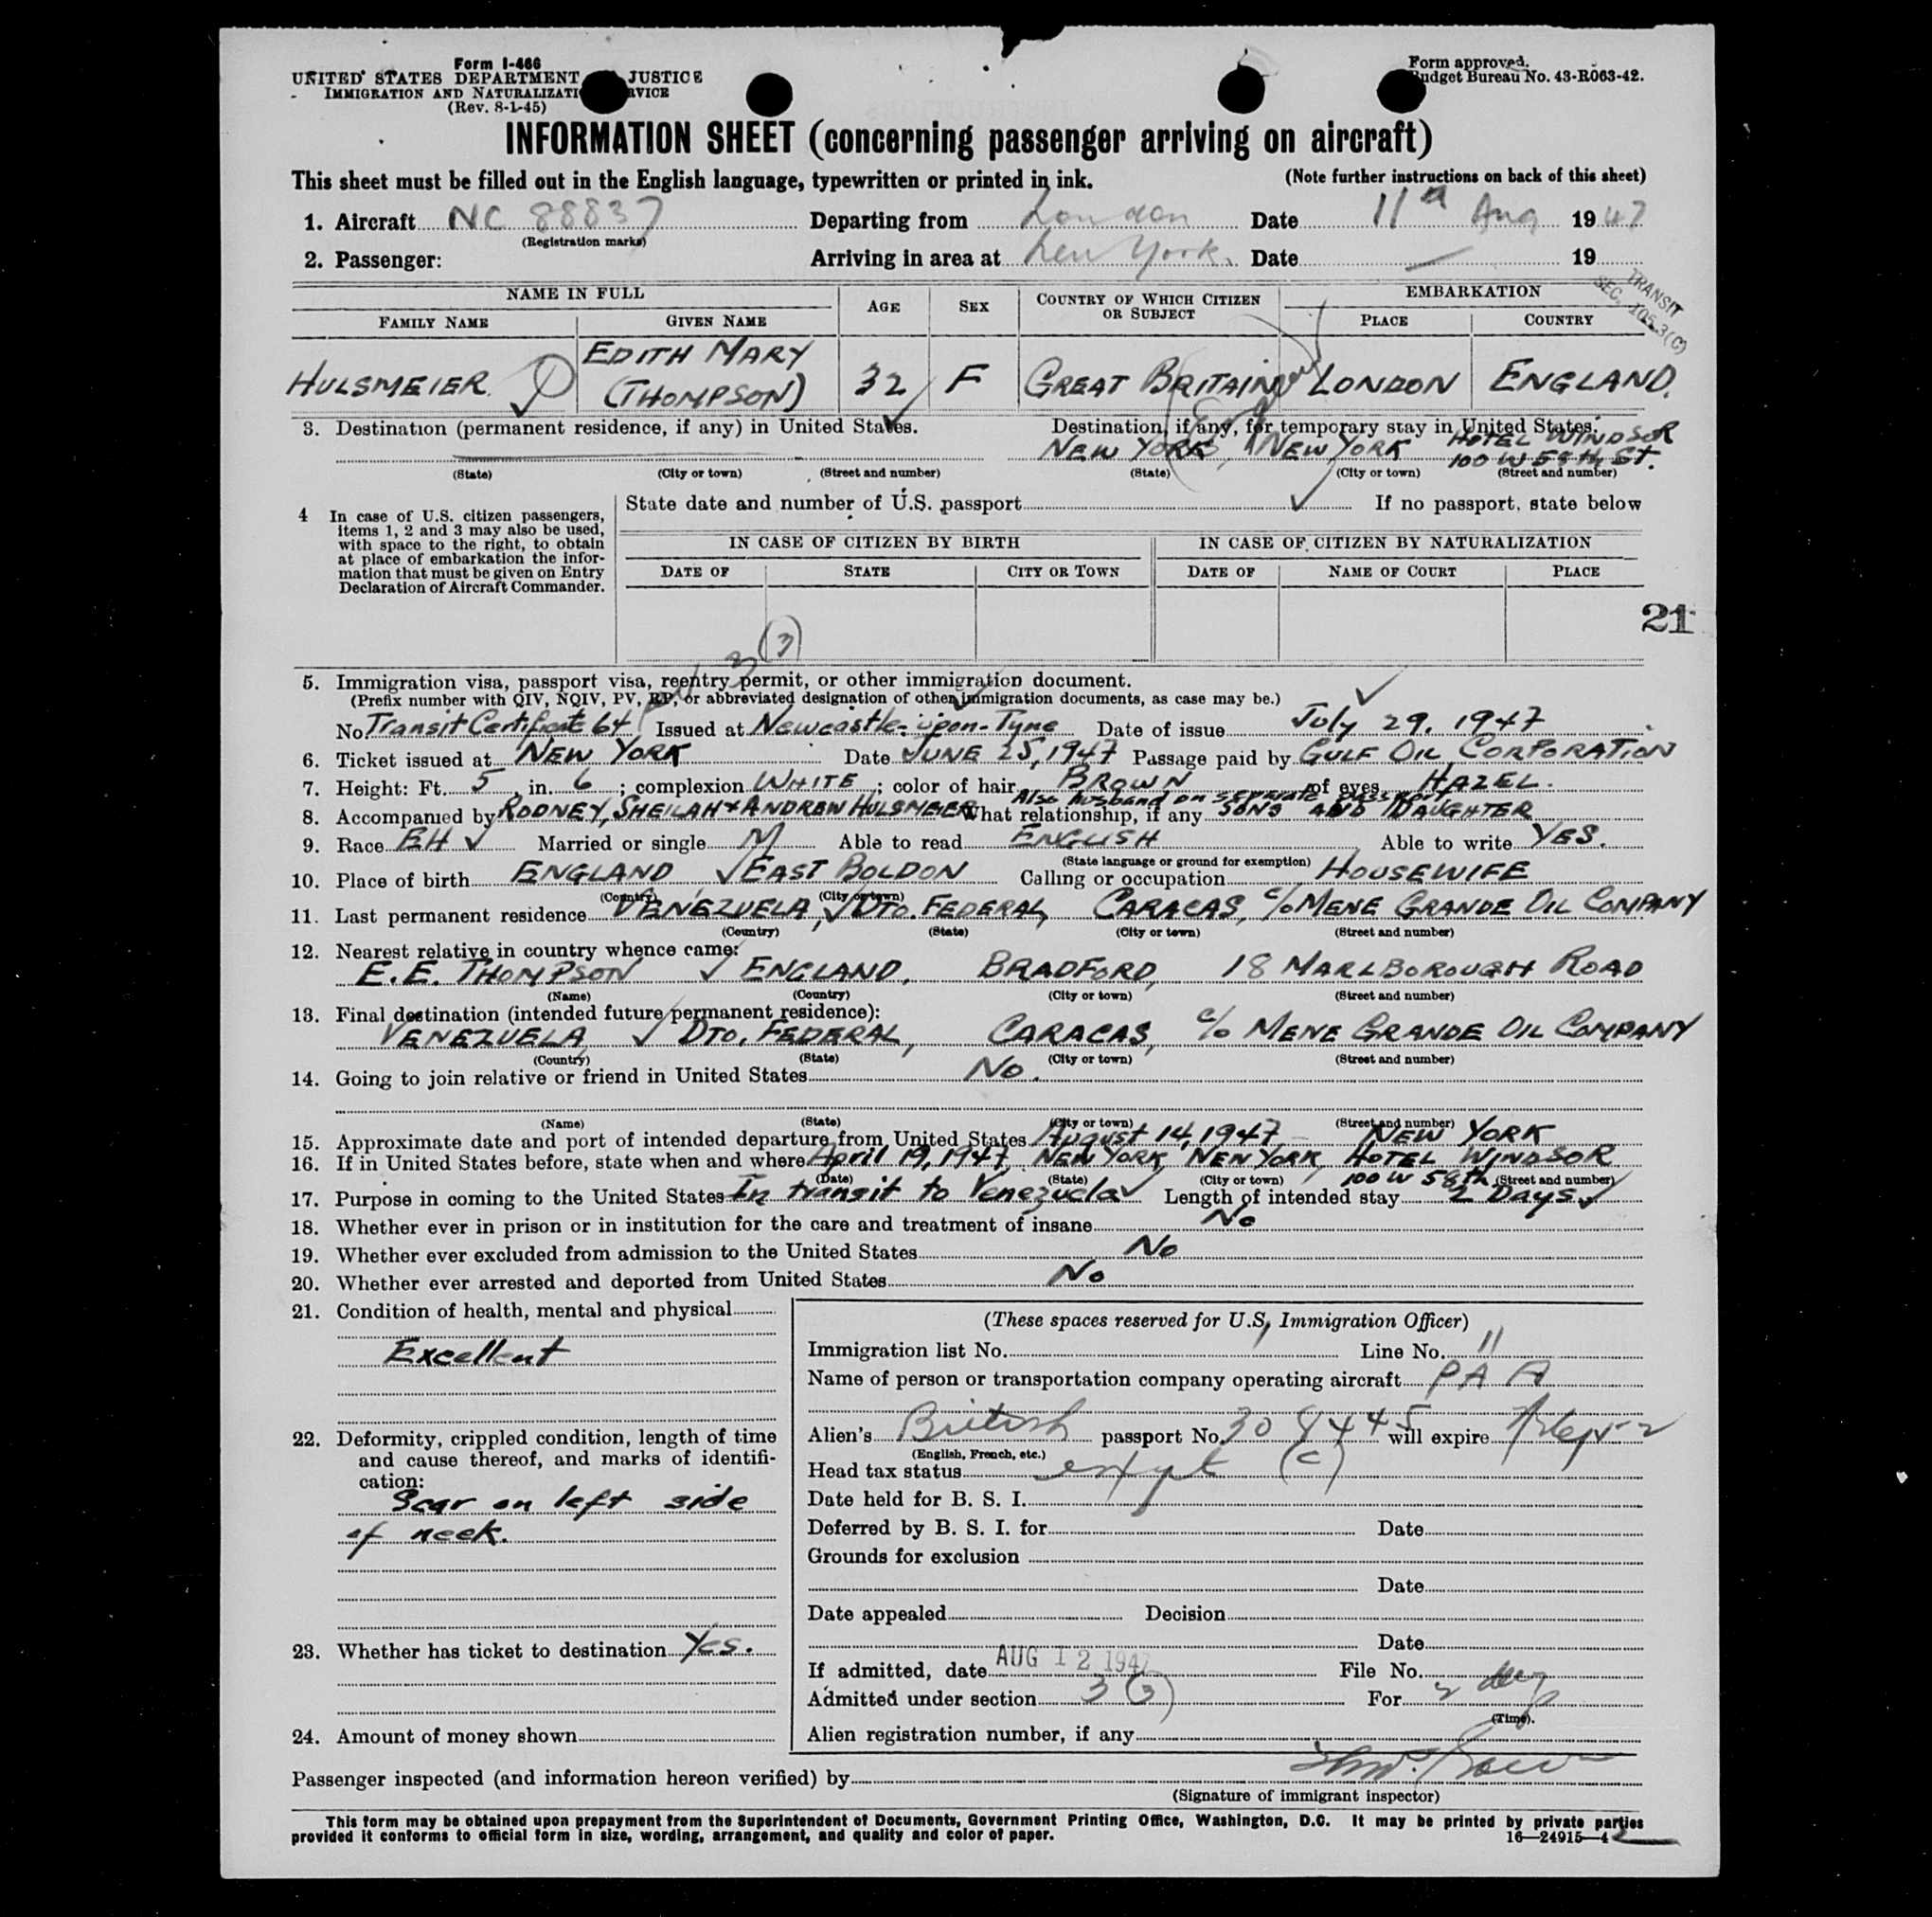 Form I-466
UNITED STATES DEPARTMENT JUSTICE
IMMIGRATION AND NATURALIZATI RVICE
(Rev. 8-1-45)
Form approved.
udget Bureau No. 43-R063-42.
INFORMATION SHEET (concerning passenger arriving on aircraft)
This sheet must be filled out in the English language, typewritten or printed in ink. (Note further instructions on back of this sheet)
1. Aircraft NC 88837 Departing from London Date 11th Aug 1947
(Registration marks)
2. Passenger: Arriving in area at New York. Date — 19
TRANSIT
SEC. 105.3(C)
NAME IN FULL AGE SEX COUNTRY OF WHICH CITIZEN OR SUBJECT EMBARKATION
FAMILY NAME GIVEN NAME PLACE COUNTRY
HULSMEIER EDITH MARY (THOMPSON) 32 F GREAT BRITAIN LONDON ENGLAND.
3. Destination (permanent residence, if any) in United States. Destination, if any, for temporary stay in United States.
NEW YORK, NEW YORK HOTEL WINDSOR 100 W 58th ST.
(State) (City or town) (Street and number) (State) (City or town) (Street and number)
4 In case of U.S. citizen passengers, items 1, 2 and 3 may also be used, with space to the right, to obtain at place of embarkation the information that must be given on Entry Declaration of Aircraft Commander.
State date and number of U.S. passport If no passport, state below
IN CASE OF CITIZEN BY BIRTH IN CASE OF CITIZEN BY NATURALIZATION
DATE OF STATE CITY OR TOWN DATE OF NAME OF COURT PLACE
21
3 (3)
5. Immigration visa, passport visa, reentry permit, or other immigration document.
(Prefix number with QIV, NQIV, PV, RP, or abbreviated designation of other immigration documents, as case may be.)
No. Transit Certificate 64 Issued at Newcastle-upon-Tyne Date of issue July 29, 1947
6. Ticket issued at NEW YORK Date JUNE 25, 1947 Passage paid by GULF OIL CORPORATION
7. Height: Ft. 5, in. 6; complexion WHITE; color of hair BROWN of eyes HAZEL.
Also husband on separate passport
8. Accompanied by RODNEY, SHEILAH & ANDREW HULSMEIER What relationship, if any SONS AND DAUGHTER
9. Race EH Married or single M Able to read ENGLISH Able to write YES.
(State language or ground for exemption)
10. Place of birth ENGLAND EAST BOLDON Calling or occupation HOUSEWIFE
(Country) (City or town)
11. Last permanent residence VENEZUELA, DTO. FEDERAL, CARACAS, c/o MENE GRANDE OIL COMPANY
(Country) (State) (City or town) (Street and number)
12. Nearest relative in country whence came:
E.E. THOMPSON ENGLAND, BRADFORD, 18 MARLBOROUGH ROAD
(Name) (Country) (City or town) (Street and number)
13. Final destination (intended future permanent residence):
VENEZUELA DTO. FEDERAL, CARACAS, c/o MENE GRANDE OIL COMPANY
(Country) (State) (City or town) (Street and number)
14. Going to join relative or friend in United States No.
(Name) (State) (City or town) (Street and number)
15. Approximate date and port of intended departure from United States August 14, 1947 - NEW YORK
16. If in United States before, state when and where April 19, 1947, NEW YORK, NEW YORK, HOTEL WINDSOR
(Date) (State) (City or town) 100 W 58th (Street and number)
17. Purpose in coming to the United States In transit to Venezuela Length of intended stay 2 Days
18. Whether ever in prison or in institution for the care and treatment of insane No
19. Whether ever excluded from admission to the United States No
20. Whether ever arrested and deported from United States No
21. Condition of health, mental and physical
Excellent
22. Deformity, crippled condition, length of time and cause thereof, and marks of identification:
Scar on left side
of neck.
23. Whether has ticket to destination Yes.
24. Amount of money shown
(These spaces reserved for U.S. Immigration Officer)
Immigration list No. 1 Line No. 11
Name of person or transportation company operating aircraft PAA
Alien's British passport No. will expire
(English, French, etc.)
Head tax status (C)
Date held for B. S. I.
Deferred by B. S. I. for Date
Grounds for exclusion
Date
Date appealed Decision
Date
If admitted, date AUG 12 1947 File No.
Admitted under section 3 (3) For 2 days
(Time).
Alien registration number, if any
Passenger inspected (and information hereon verified) by
(Signature of immigrant inspector)
This form may be obtained upon prepayment from the Superintendent of Documents, Government Printing Office, Washington, D.C. It may be printed by private parties
provided it conforms to official form in size, wording, arrangement, and quality and color of paper. 16—24915—4